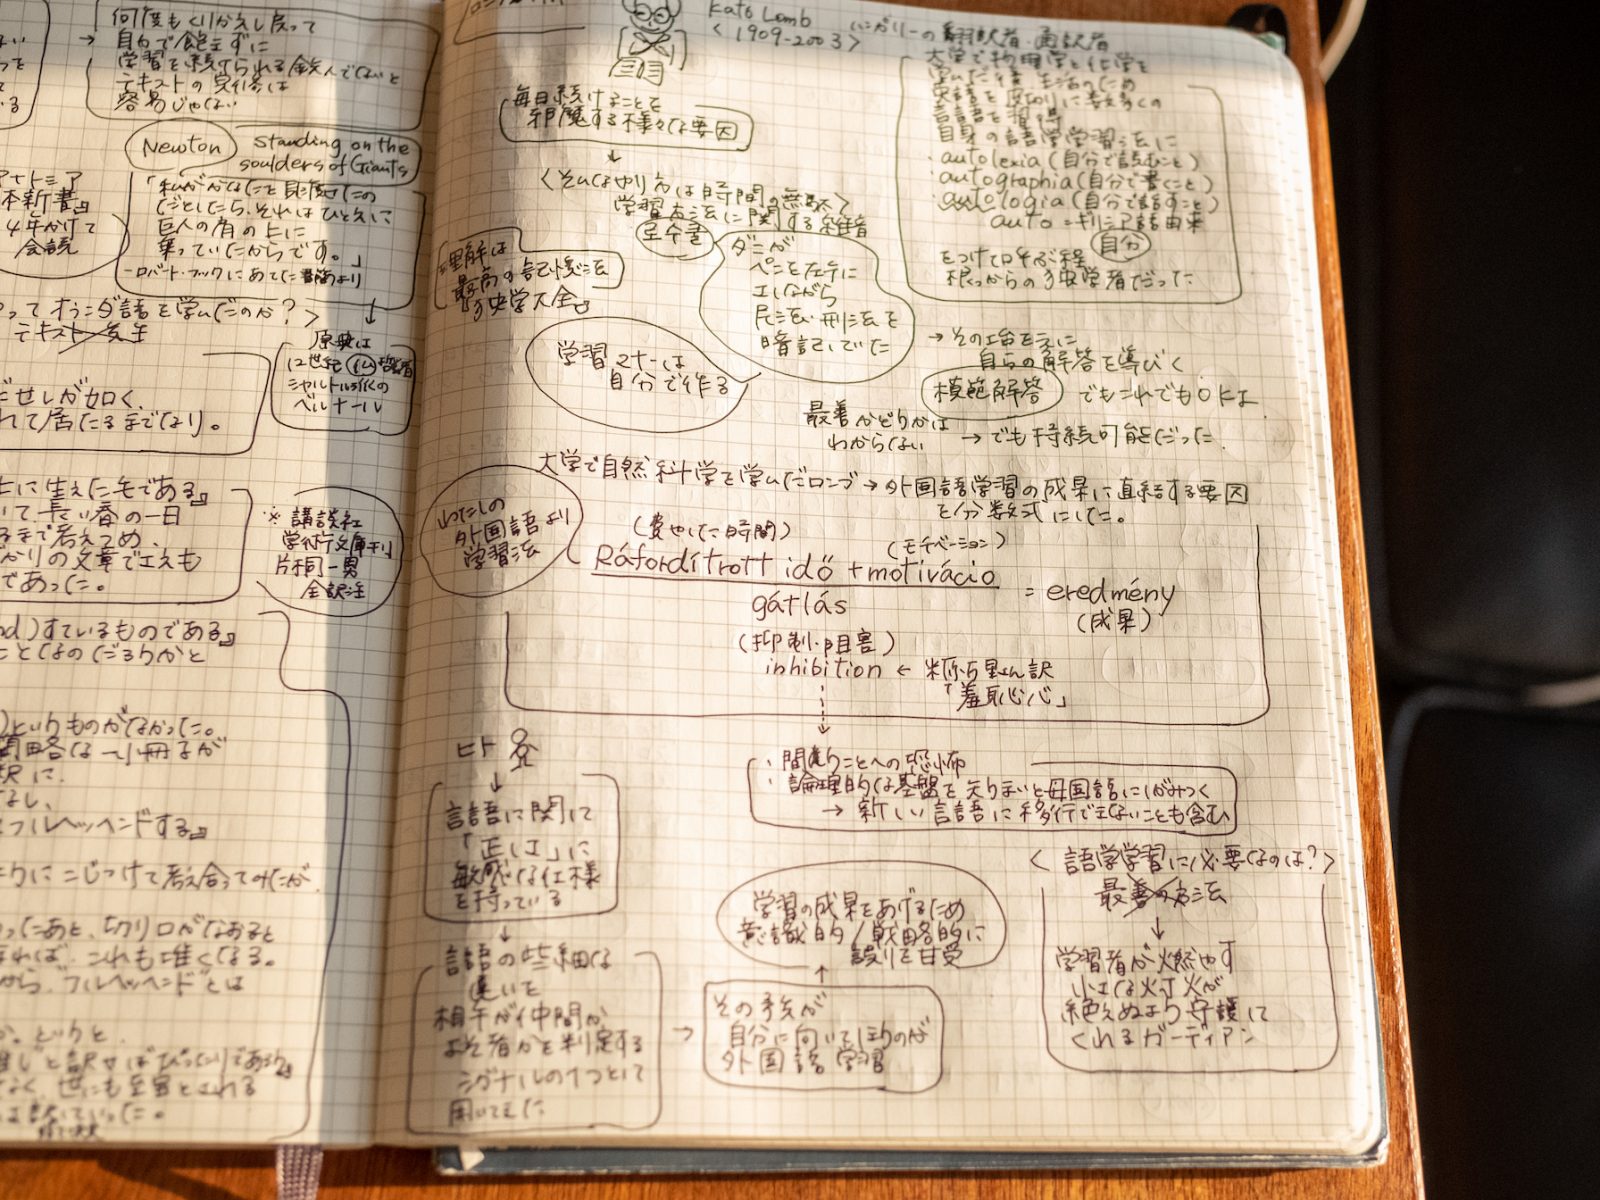 何度もくりかえし戻って
→ 自分で飽きずに
学習を続けられる
テキストの完備は
容易じゃない
Newton
standing on the
soulders of Giants
「私がかなたを見渡せたの
だとしたら、それはひとえに
巨人の肩の上に
乗っていたからです。」
ーロバート・フックにあてた書簡より
本新書』
4年かけて
会読
って オランダ語を学んだのか?>
テキスト 先生
原典は
12世紀 仏 哲学者
シャルトル派の
ベルナール
だせしが如く、
れて居たるまでなり。
に生えた毛である』
いて、長い春の一日
るまで考えつめ、
かりの文章でさえも
であった。
※ 講談社
学術文庫刊
片桐一男
全訳注
nd)すているものである』
ことなのだろうかと
)というものがなかった。
簡略な一小冊子が
訳に、
なし、
フルヘッヘンドする』
りにこじつけて考え合ってみたが、
ったあと、切り口がなおると
まれば、これも堆くなる。
から、フルヘッヘンドとは
か。というと、
堆しと訳せばぴったりである』
なく、世にも至宝とされる
Kató Lomb
<1909-2003>
ハンガリーの翻訳者・通訳者
大学で物理学と化学を
学んだ後 生活のため
英語を皮切りに数多くの
言語を習得
自身の語学学習法に
・autolexia (自分で読むこと)
・autographia (自分で書くこと)
・autologia (自分で話すこと)
auto = ギリシア語由来
自分
をつけて呼ぶ程
根っからの独学者だった
毎日続けることを
邪魔する様々な要因
↓
<そんなやり方は時間の無駄>
学習方法に関する雑音
『理解は
最高の記憶法
独学大全』
ロムスクール
ダニが
ペンを左手に
民法・刑法を
暗記していた
学習マナーは
自分で作る
→ その土台を元に
自らの解答を導びく
模範解答 でもこれでもOKよ
最善かどうかは
わからない → でも持続可能だった
大学で自然科学を学んだロンブ → 外国語学習の成果に直結する要因
を分数式にした。
わたしの
外国語
学習法 より
(費やした時間) (モチベーション)
Ráfordítrott idő + motivácio
= eredmény
gátlás
(成果)
(抑制・阻害)
inhibition ← 米原万里さん訳
「羞恥心」
・間違うことへの恐怖
・論理的な基盤を失うまいと母国語にしがみつく
→ 新しい言語に移行できないことも含む
ヒト
↓
言語に関して
「正しさ」に
敏感な仕様
を持っている
↓
言語の些細な
違いを
相手が仲間か
よそ者かを判定する
シグナルの1つとして
用いてきた
→ その矛先が
自分に向いてしまうのが
外国語学習
↑
学習の成果をあげるため
意識的/戦略的に
誤りを甘受
<語学学習に必要なのは?>
最善の方法
↓
学習者が燃やす
小さな灯火が
絶えぬよう守護して
くれるガーディアン